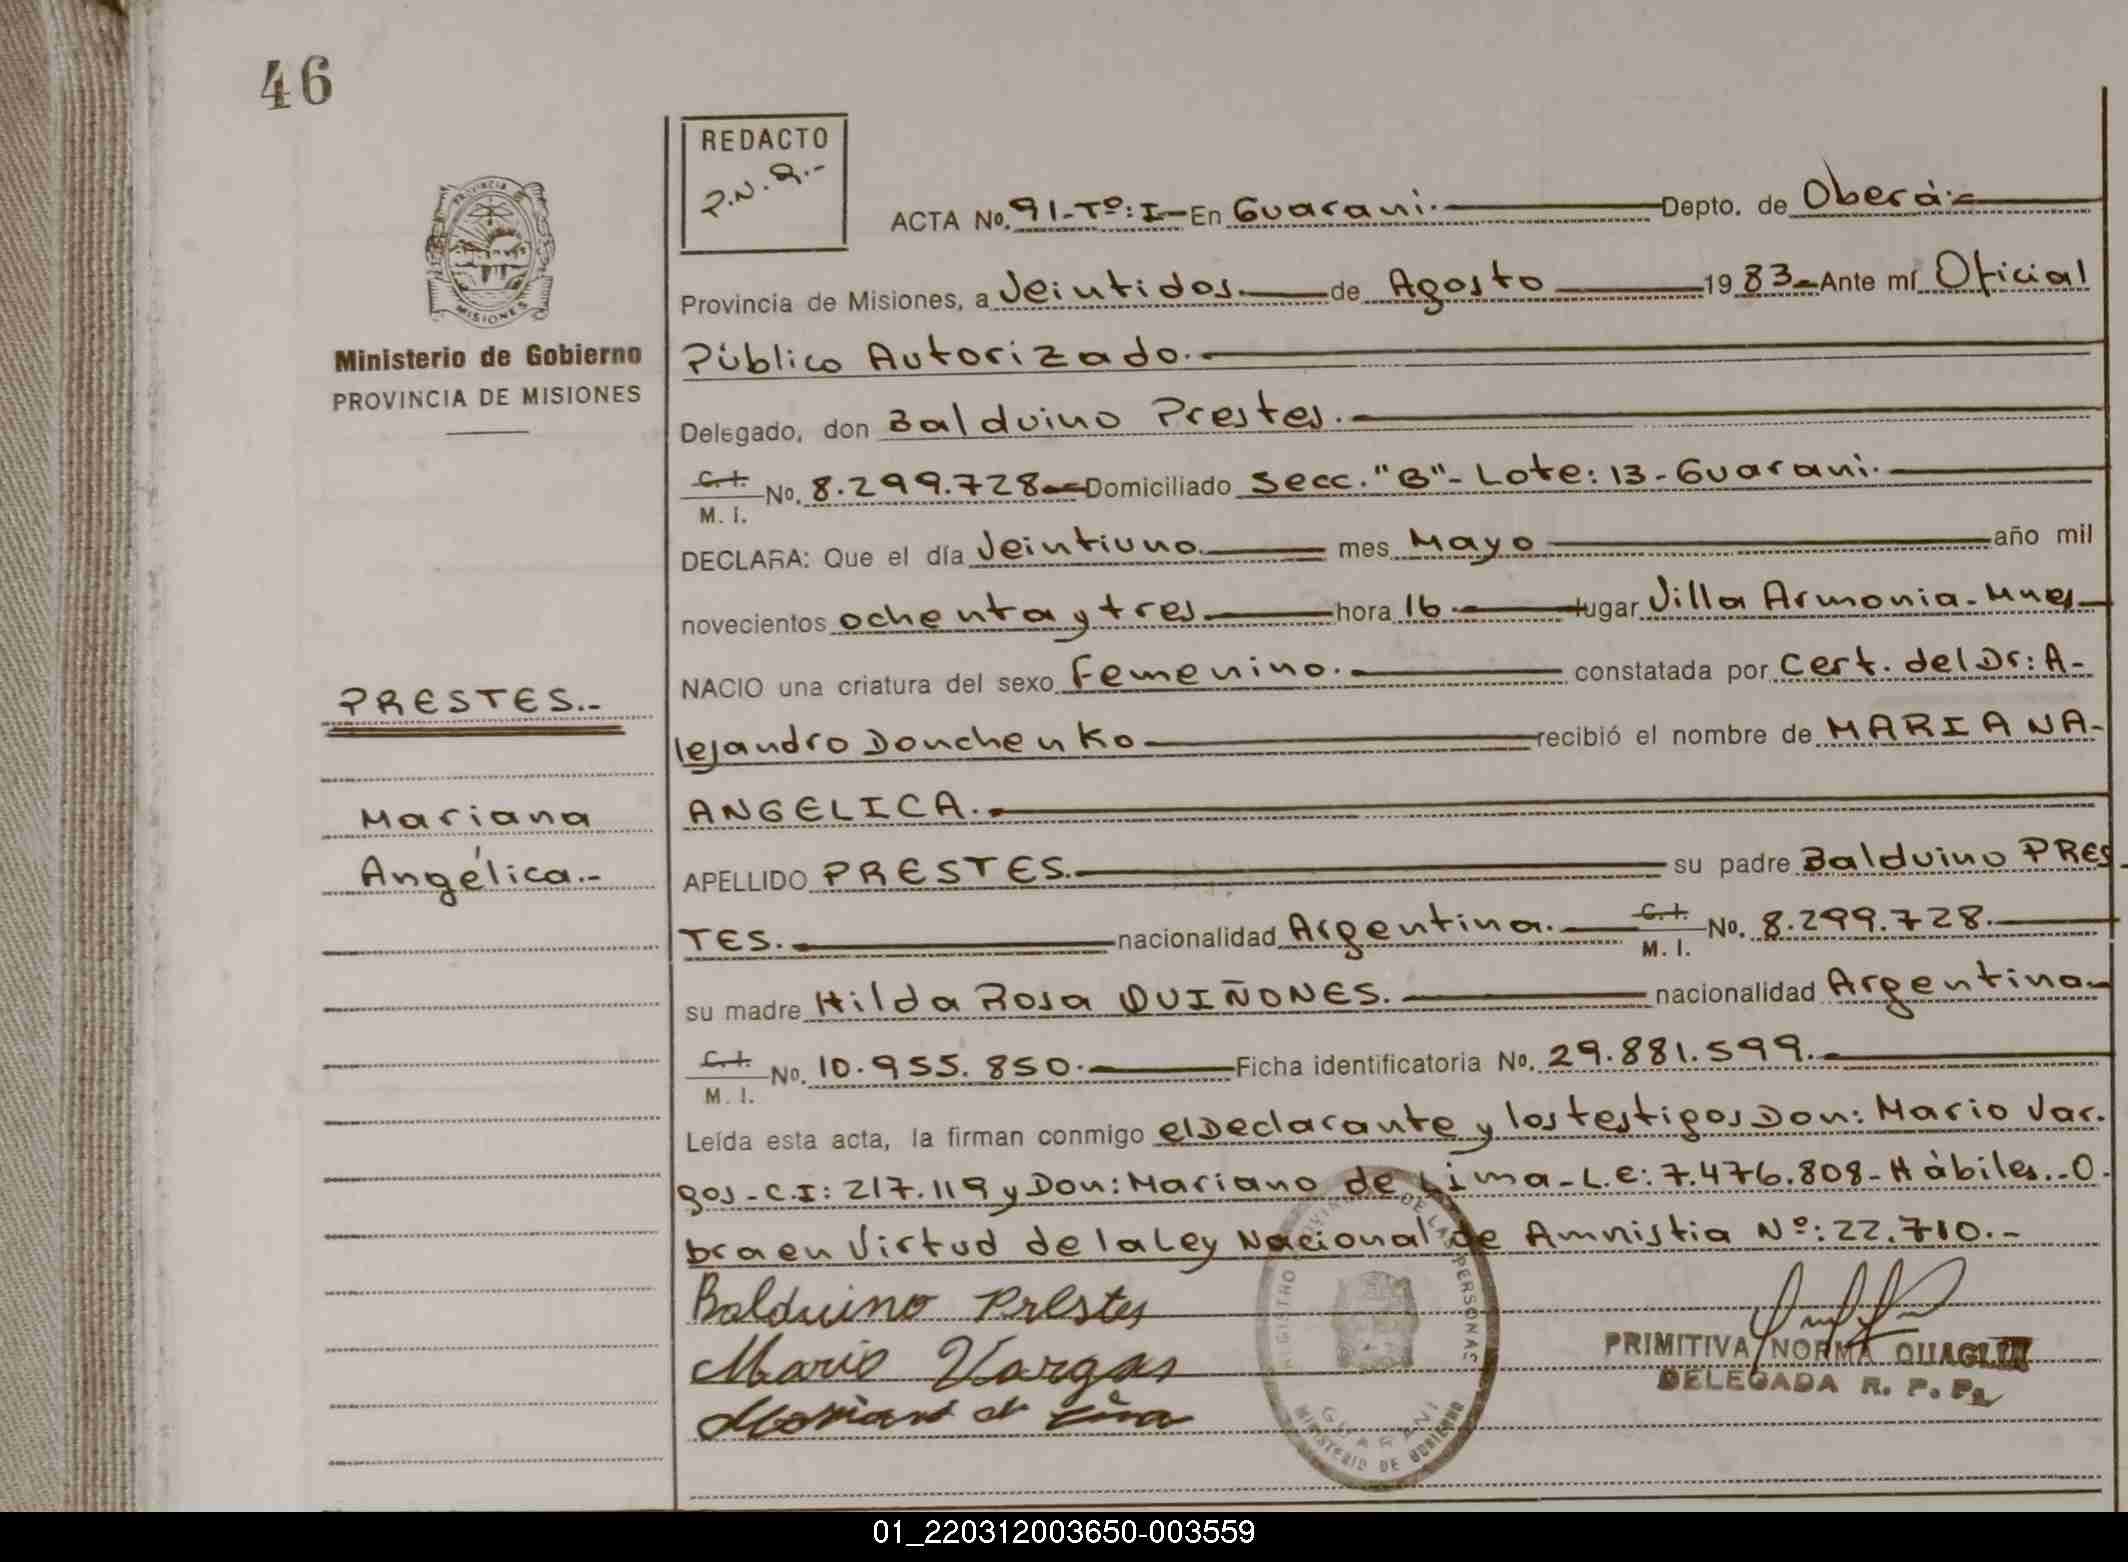 46
REDACTO
P.N.Q.-
PROVINCIA DE
MISIONES
Ministerio de Gobierno
PROVINCIA DE MISIONES
PRESTES.-
Mariana
Angélica.-
ACTA No. 91-Tº:I- En Guarani. Depto. de Oberá.-
Provincia de Misiones, a Veintidos de Agosto 19 83- Ante mí Oficial
Público Autorizado.-
Delegado, don Balduino Prestes.-
C.I. M.I. No. 8.299.728- Domiciliado Secc. "B"- Lote: 13 - Guarani.-
DECLARA: Que el día Veintiuno mes Mayo año mil
novecientos ochenta y tres hora 16 lugar Villa Armonia - Mnes
NACIO una criatura del sexo Femenino.- constatada por Cert. del Dr: A-
lejandro Donchenko recibió el nombre de MARIANA-
ANGELICA.-
APELLIDO PRESTES.- su padre Balduino PRES-
TES.- nacionalidad Argentina.- C.I. M.I. No. 8.299.728.-
su madre Hilda Rosa QUIÑONES.- nacionalidad Argentina-
C.I. M.I. No. 10.955.850.- Ficha identificatoria No. 29.881.599.-
Leída esta acta, la firman conmigo el Declarante y los testigos Don: Mario Var.
gas - C.I: 217.119 y Don: Mariano de Lima - L.E: 7.476.808 - Hábiles.. O-
bra en Virtud de la Ley Nacional de Amnistia Nº: 22.710.-
Balduino Prestes
Mario Vargas
Mariano de Lima
REGISTRO PROVINCIAL DE LAS PERSONAS
GUARANI
MINISTERIO DE GOBIERNO
PRIMITIVA NORMA
DELEGADA R. P. P.
01_220312003650-003559